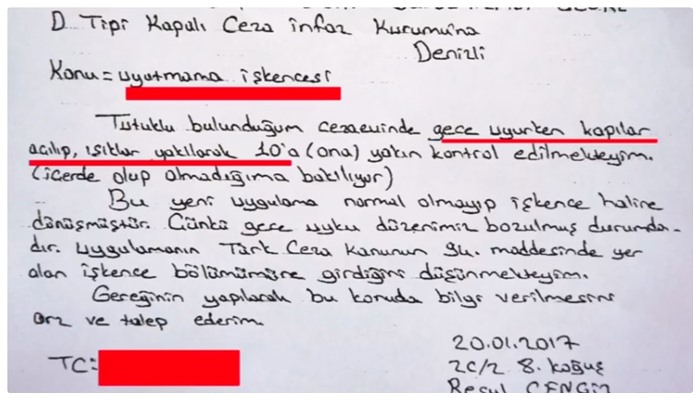 D Tipi Kapalı Ceza infaz Kurumu'na
Denizli
Konu = uyutmama işkencesi
Tutuklu bulunduğum cezaevinde gece uyurken kapılar
açılıp, ışıklar yakılarak 10'a (ona) yakın kontrol edilmekteyim.
(içerde olup olmadığıma bakılıyor)
Bu yeni uygulama normal olmayıp işkence haline
dönüşmüştür. Çünkü gece uyku düzenimiz bozulmuş durumda-
dır. Uygulamanın Türk Ceza Kanunun 94. maddesinde yer
alan işkence bölümümüne girdiğini düşünmekteyim.
Gereğinin yapılarak bu konuda bilgi verilmesini
arz ve talep ederim.
20.01.2017
TC=
2C/2 8. koğuş
Resul CENGİZ